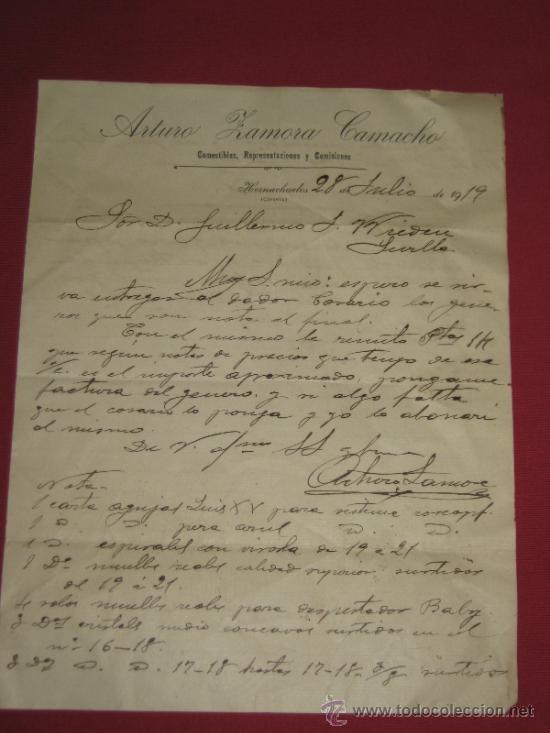 Arturo Zamora Camacho
Comestibles, Representaciones y Comisiones
Hornachuelos 28 de Julio de 1919
(CORDOBA)
Sor D. Guillermo J. 
Sevilla
Muy S. mio: espero se sir-
va entregar al dador Cosario los gene-
ros que son nota al final.
Con el mismo le remito Ptas
que segun notas de precios que tengo de esa
es el importe aproximado, pongame
factura del genero y si algo falta
que el cosario lo ponga y yo lo abonaré
al mismo.
De V. afmo SS
Arturo Zamora
Nota
1 carta agujas Luis XV para
1 D. D. para azul D. D.
1 D. espirales con virola de 19 a 21
1 Da muelles reales calidad superior surtidos
del 19 á 21
solos muelles reales para despertador Baby
3 Das cristales medio concavos surtidos en el
nº 16-18
3 Das D. D. 17-18 hasta 17-18 surtidos
todocoleccion
© www.todocoleccion.net